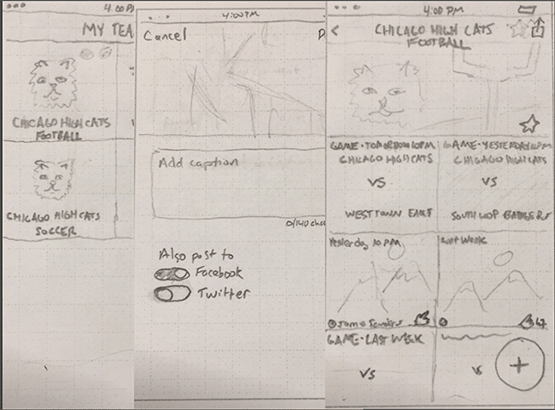 4:00 PM
MY TEA
CHICAGO HIGH CATS
FOOTBALL
CHICAGO HIGH CATS
SOCCER
4:00 PM
Cancel
P
Add caption
0/140 cha
Also post to
Facebook
Twitter
4:00 PM
<
CHICAGO HIGH CATS
FOOTBALL
GAME · TOMORROW 10PM
CHICAGO HIGH CATS
VS
WESTTOWN EAST
GAME · YESTERDAY 10PM
CHICAGO HIGH CATS
VS
SOUTH LOOP BADGERS
Yesterday, 10 PM
Last Week
GAME · LAST WEEK
VS
VS
+